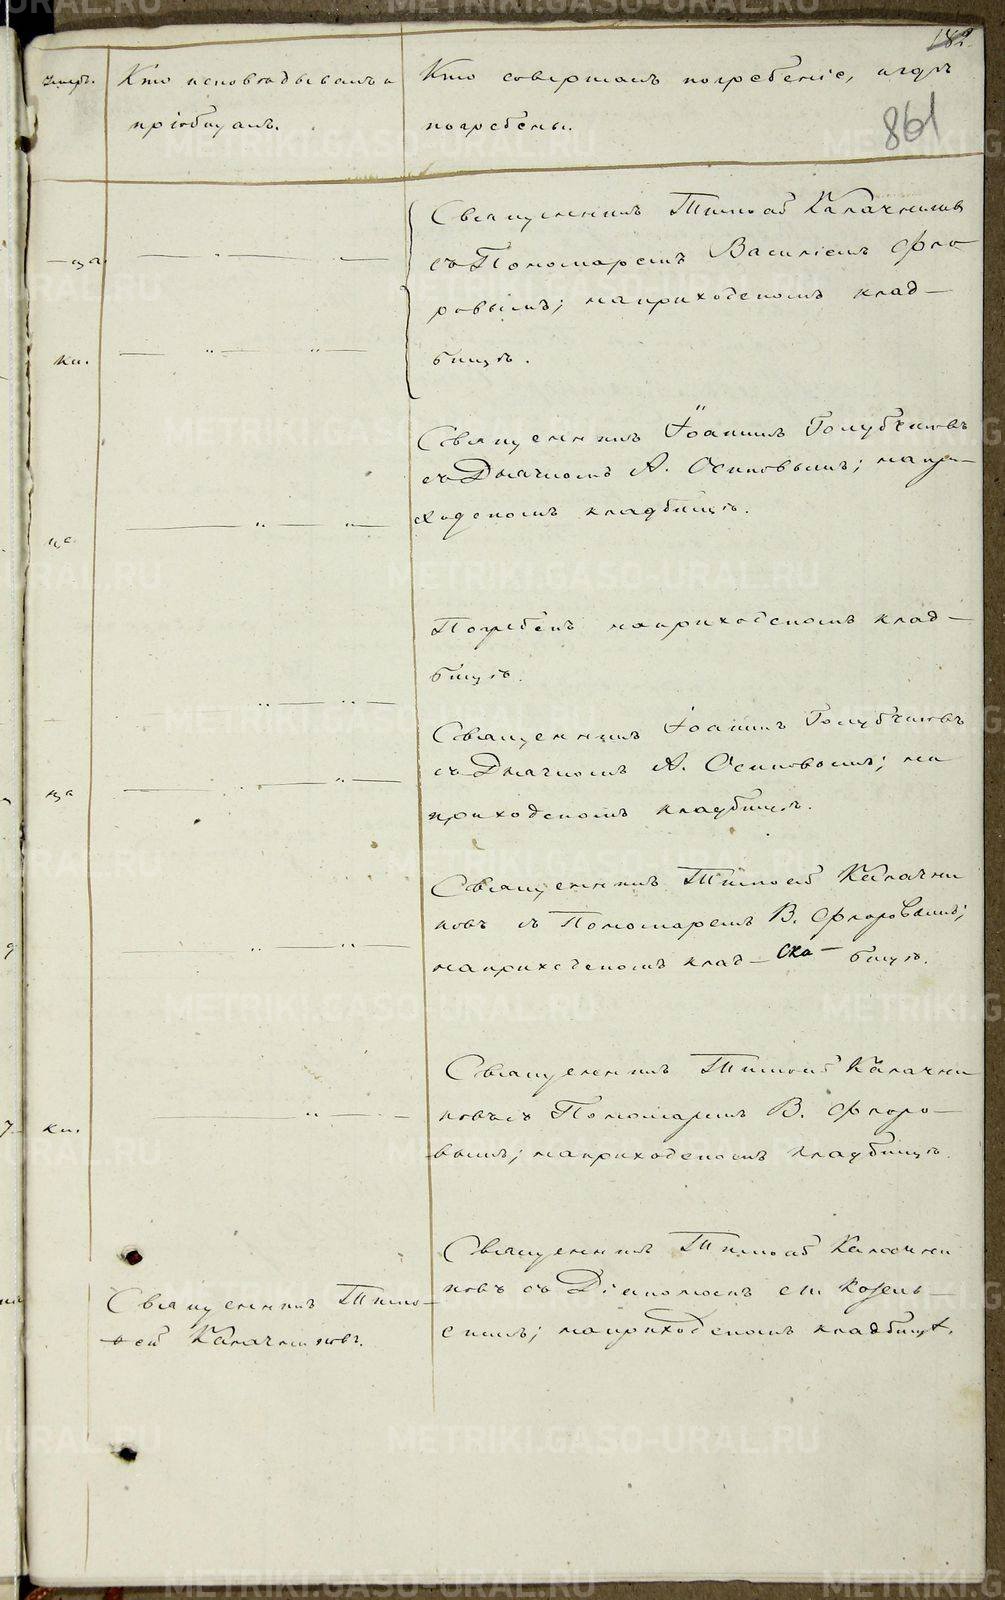 182.
861
умеръ.
Кто исповѣдывалъ и
пріобщалъ.
Кто совершалъ погребеніе, и гдѣ
погребены.
Священникъ Тимоѳей Калачниковъ
съ Пономаремъ Василіемъ Фло-
ровымъ; на приходскомъ клад-
бищѣ.
ца
ки.
Священникъ Іоаннъ Голубчиковъ
съ Дьячкомъ А. Осиповымъ; на при-
ходскомъ кладбищѣ.
Погребенъ на приходскомъ клад-
бищѣ.
Священникъ Іоаннъ Голубчиковъ
съ Дьячкомъ А. Осиповымъ; на
приходскомъ кладбищѣ.
ца
Священникъ Тимоѳей Калачни
ковъ съ Пономаремъ В. Флоровымъ;
на приходскомъ клад- ска- бищѣ.
Священникъ Тимоѳей Калачни
ковъ съ Пономаремъ В. Флоро-
вымъ; на приходскомъ кладбищѣ.
ки.
Священникъ Тимоѳей Калачни
ковъ съ Діакономъ
скимъ; на приходскомъ кладбищѣ.
Священникъ Тимо-
ѳей Калачниковъ.
METRIKI.GASO-URAL.RU